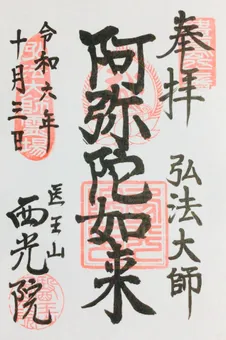 奉拝
弘法大師
阿弥陀如来
令和六年
十月三日
医王山
西光院